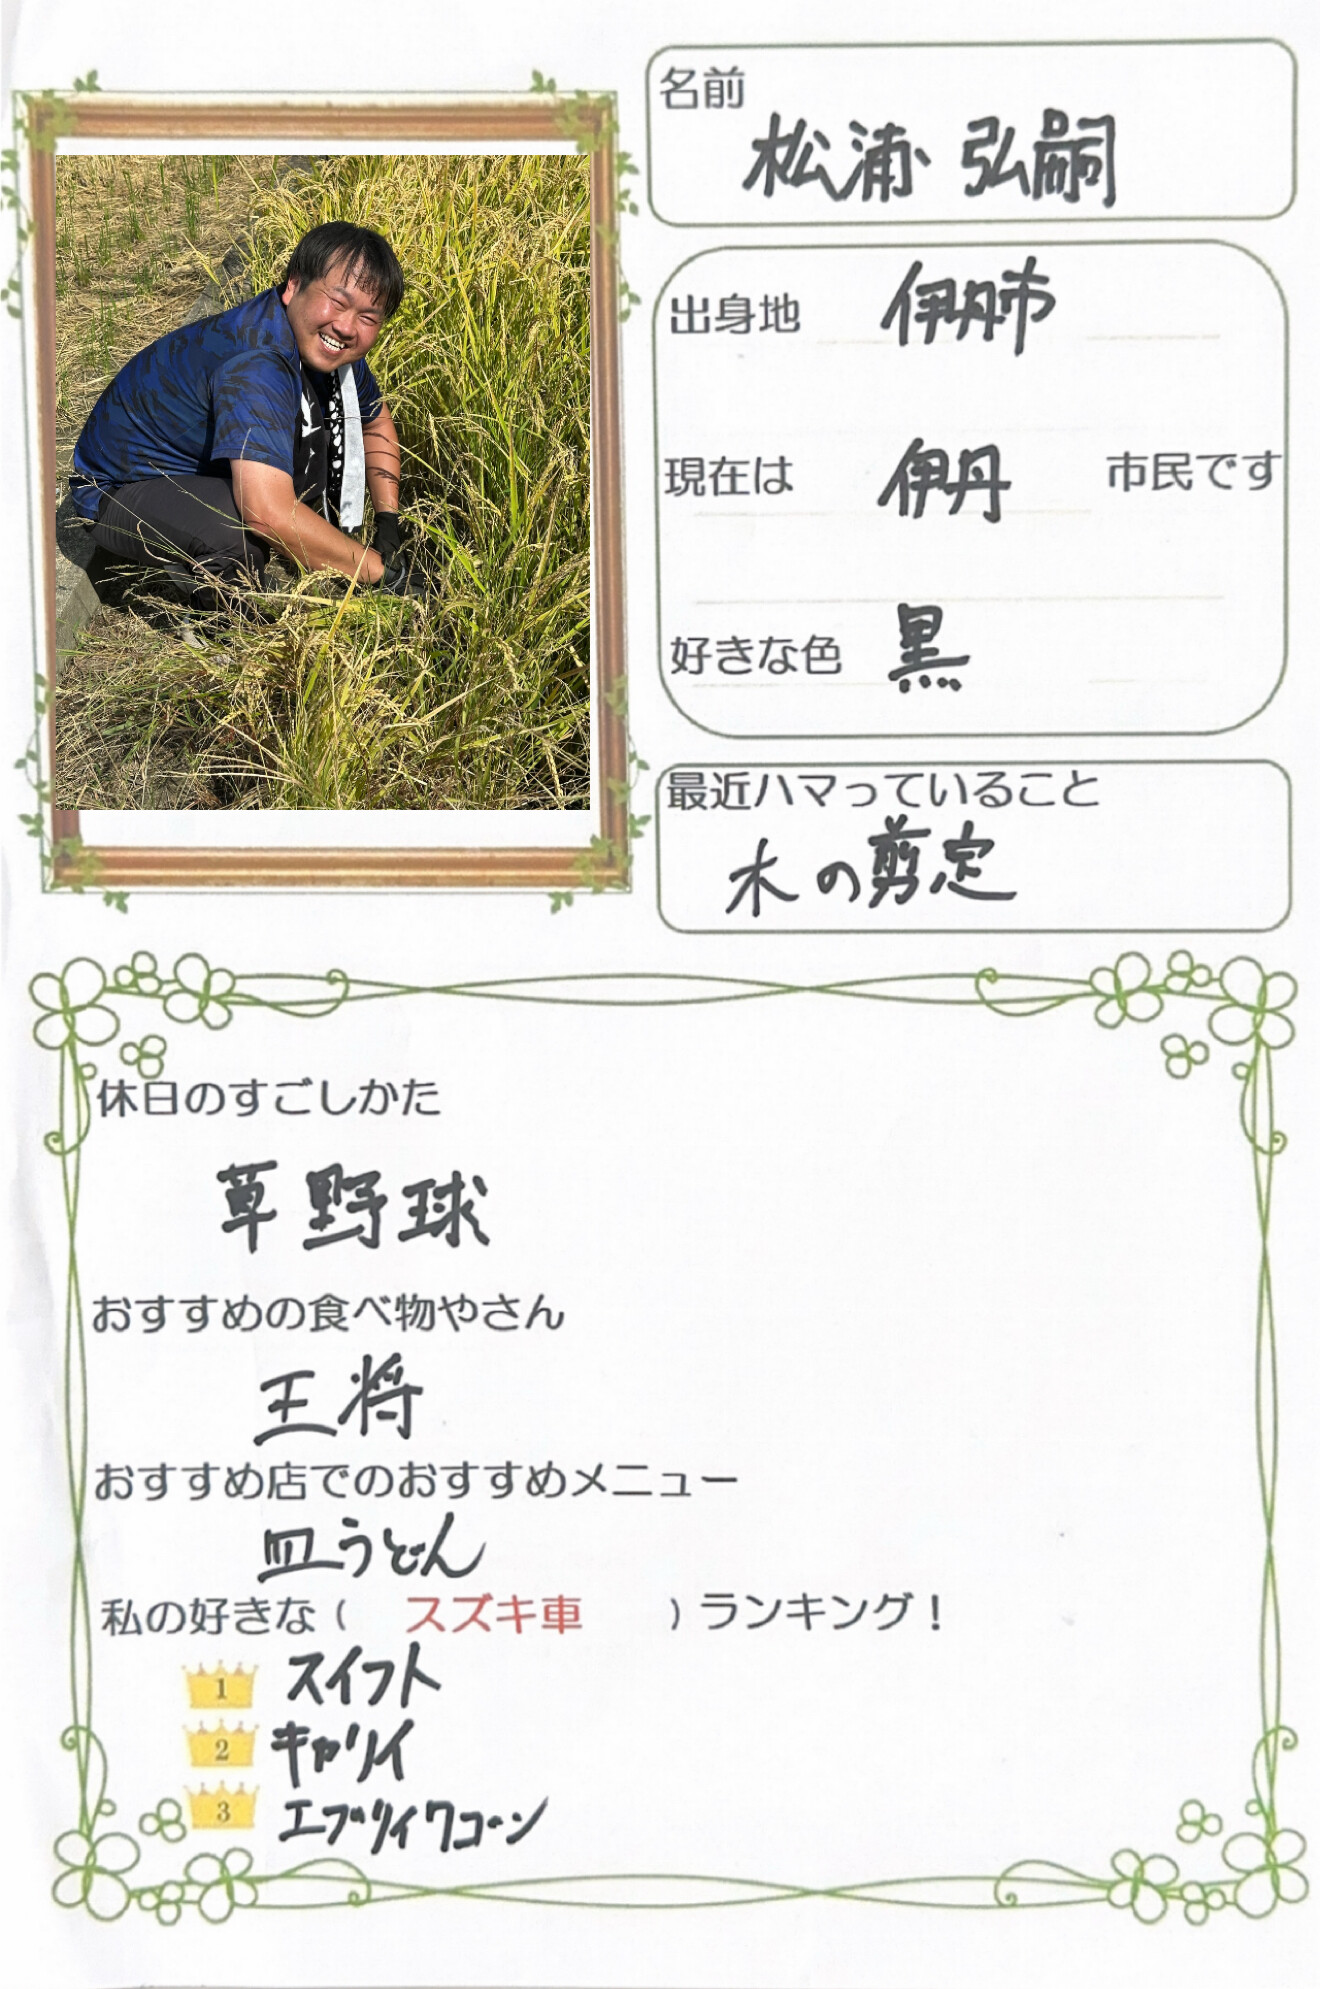 名前
松浦 弘嗣
出身地 伊丹市
現在は 伊丹 市民です
好きな色 黒
最近ハマっていること
木の剪定
休日のすごしかた
草野球
おすすめの食べ物やさん
王将
おすすめ店でのおすすめメニュー
皿うどん
私の好きな( スズキ車 )ランキング!
1 スイフト
2 キャリイ
3 エブリイワゴン